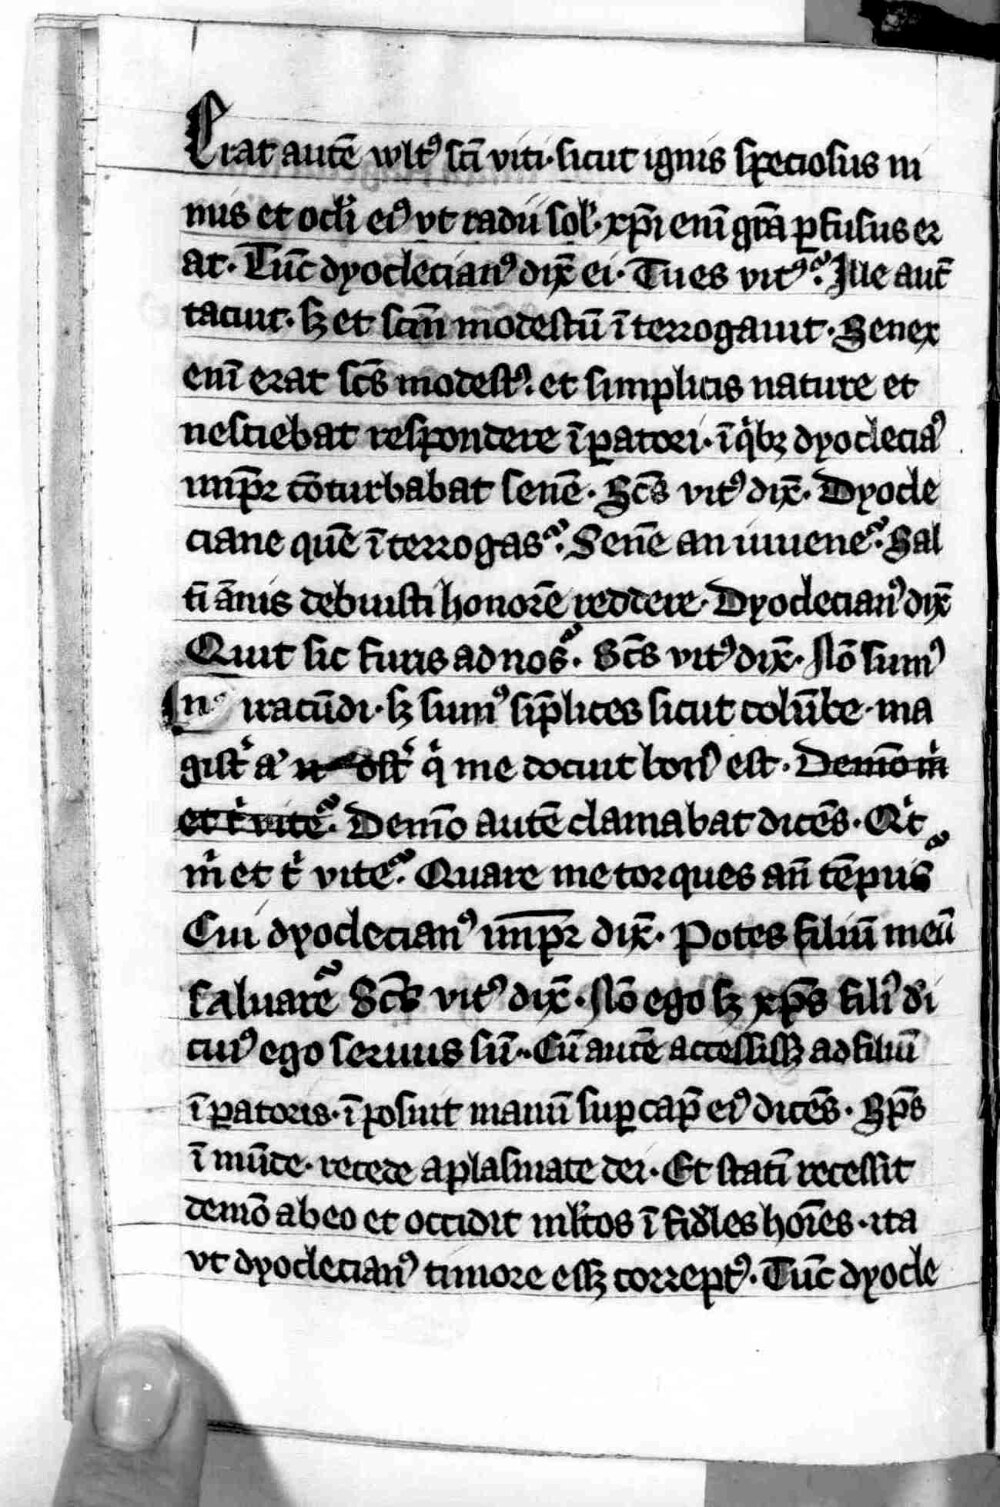 Erat autē wltꝰ scī viti· sicut ignis speciosus ni
mus et oclī eiꝰ vt radii sol̛· xp̄i enī gr̄a ꝑfusus er
at· Tūc dyoclecianꝰ dix̄ ei· Tu es vitꝰ? Ille aut̄
tacuit· sꝫ et scm̄ modestū īterrogauit· Senex
enī erat scs̄ modestꝰ· et simplicis nature et
nesciebat respondere īꝑatori· ī qͥbꝫ dyocleciaꝰ
imꝑr cōturbabat senē· Scs̄ vitꝰ dix̄· Dyocle
ciane quē īterrogas? Senē an iuuenē? Sal
tī ānis debuisti honorē reddere· Dyoclecianꝰ dix̄
Quit sic furis ad nos? Scs̄ vitꝰ dix̄· Nō sumꝰ
iracūdi· sꝫ sumꝰ sīplices sicut colūbe· ma
gist̛ a̛ n ost̛ qͥ me docuit bonꝰ est· Demō m̛
et t̛ vite? Demō autē clamabat dicēs· Qͥt
m̛ et t̛ vite? Quare me torques an̄ tēpus?
Cui dyoclecianꝰ imꝑr dix̄· Potes filiū meū
saluare? Scs̄ vitꝰ dix̄· Nō ego sꝫ xp̄s filiꝰ di
cuiꝰ ego seruus sū· Cū autē accessissꝫ ad filiū
īꝑatoris· īposuit manū suꝑ cap̄ eiꝰ dicēs· Sp̄s
īmūde· recede a plasmate dei· Et statī recessit
demō ab eo et occidit ml̄tos īfid̛les hoīes· ita
vt dyoclecianꝰ timore essꝫ correptꝰ· Tūc dyocle